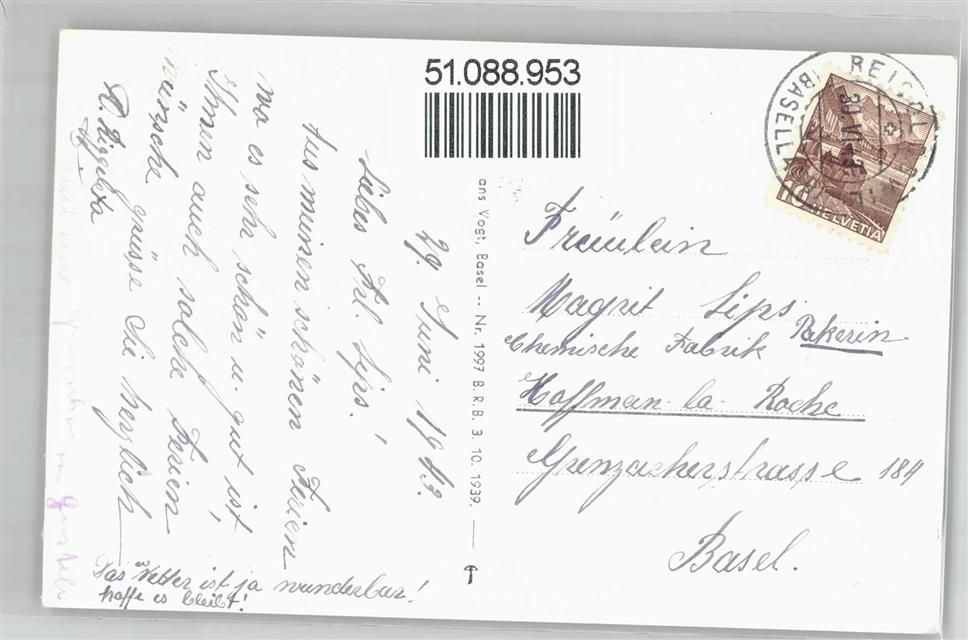 51.088.953
29. Juni 1943.
Liebes Frl. Lips!
Aus meinen schönen Ferien
wo es seh schön u. gut ist
Ihnen auch solche Ferien
wünsche grüsse Sie herzlich
Das Wetter ist ja wunderbar!
hoffe es bleibt!
ans Vogt, Basel -- Nr. 1997 B.R.B. 3. 10. 1939.
REIGOL
(BASELLA
30.VI.43
10 HELVETIA
Fräulein
Magrit Lips
Pakerin
Chemische Fabrik
Hoffman-la-Roche
Grenzacherstrasse 184
Basel.